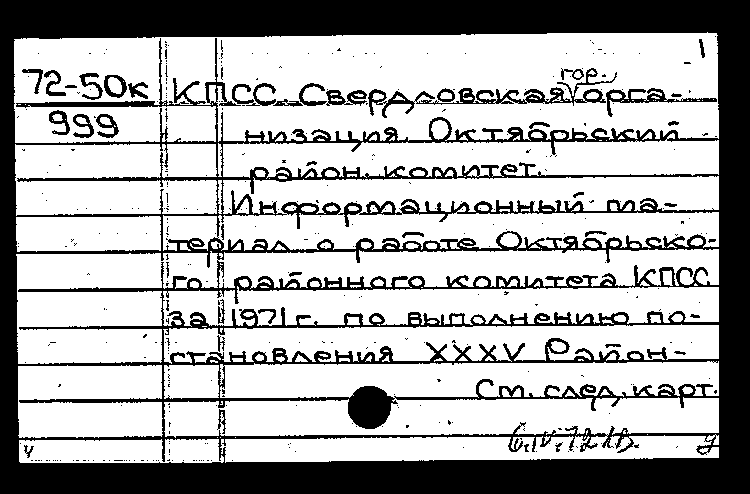 1
72-50к КПСС. Свердловская гор. орга-
999
низация. Октябрьский
район. комитет.
Информационный ма-
териал о работе Октябрьско-
го районного комитета КПСС
за 1971 г. по выполнению по-
становления XXXV Район-
См. след. карт.
6.IV.72
у